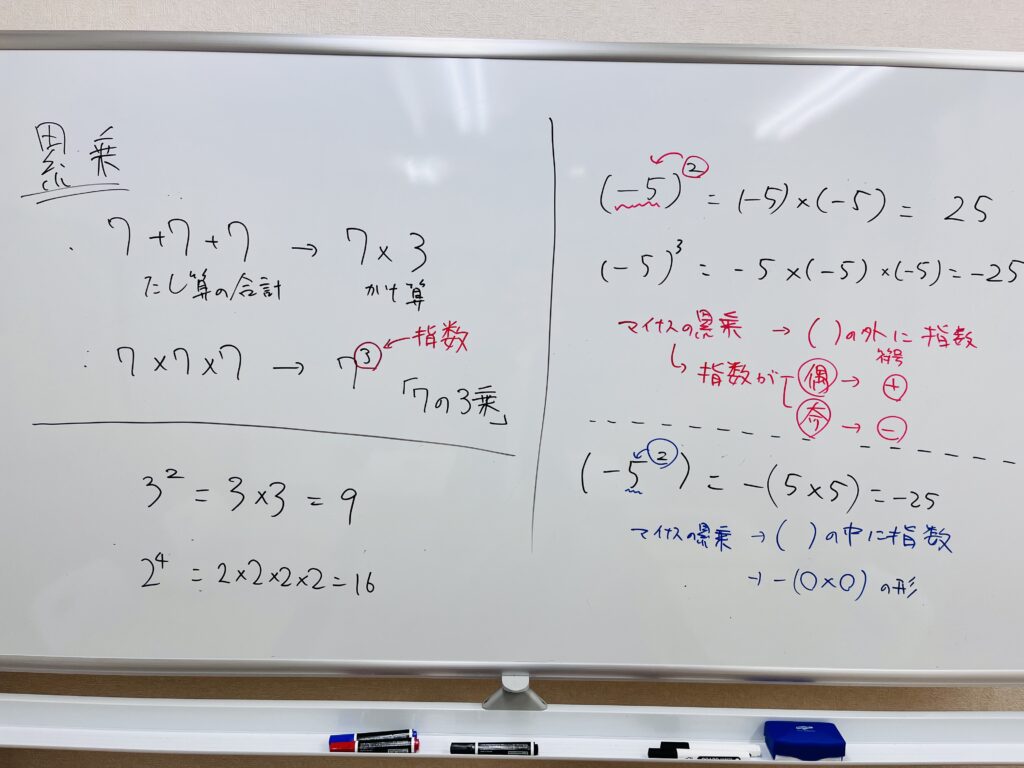 累乗
・ 7+7+7 → 7×3
たし算の合計 かけ算
・ 7×7×7 → 7³ ← 指数
「7の3乗」
3² = 3×3 = 9
2⁴ = 2×2×2×2=16
(-5)² = (-5)×(-5) = 25
(-5)³ = -5×(-5)×(-5)=-25
マイナスの累乗 → ( )の外に指数
符号
指数が 偶 → +
奇 → -
(-5²) = -(5×5)=-25
マイナスの累乗 → ( )の中に指数
→ -(0×0)の形